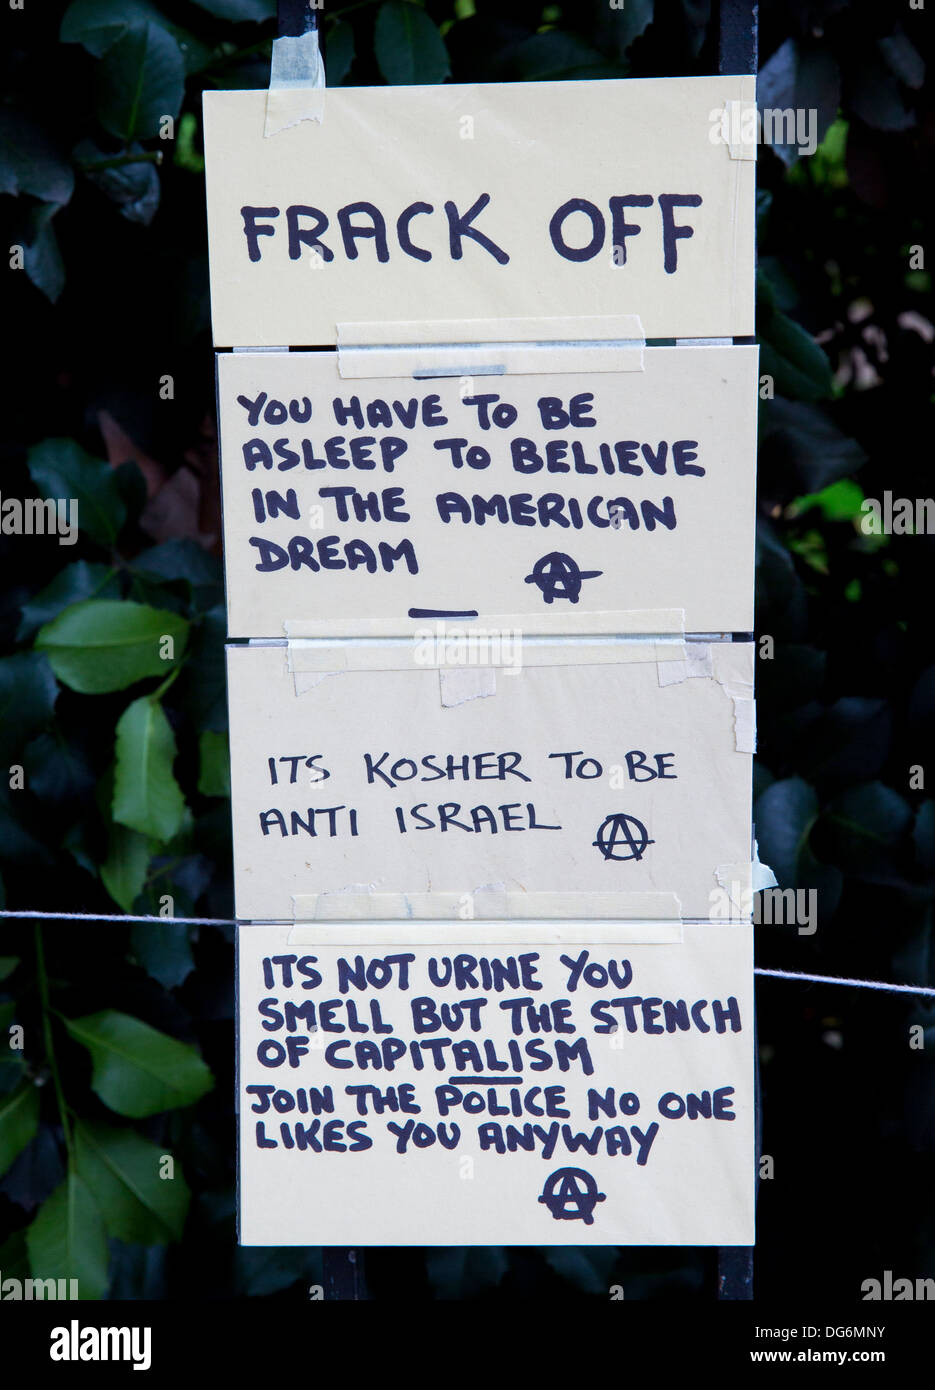 FRACK OFF
YOU HAVE TO BE
ASLEEP TO BELIEVE
IN THE AMERICAN
DREAM
ITS KOSHER TO BE
ANTI ISRAEL
ITS NOT URINE YOU
SMELL BUT THE STENCH
OF CAPITALISM
JOIN THE POLICE NO ONE
LIKES YOU ANYWAY
alamy stock photo
DG6MNY
www.alamy.com